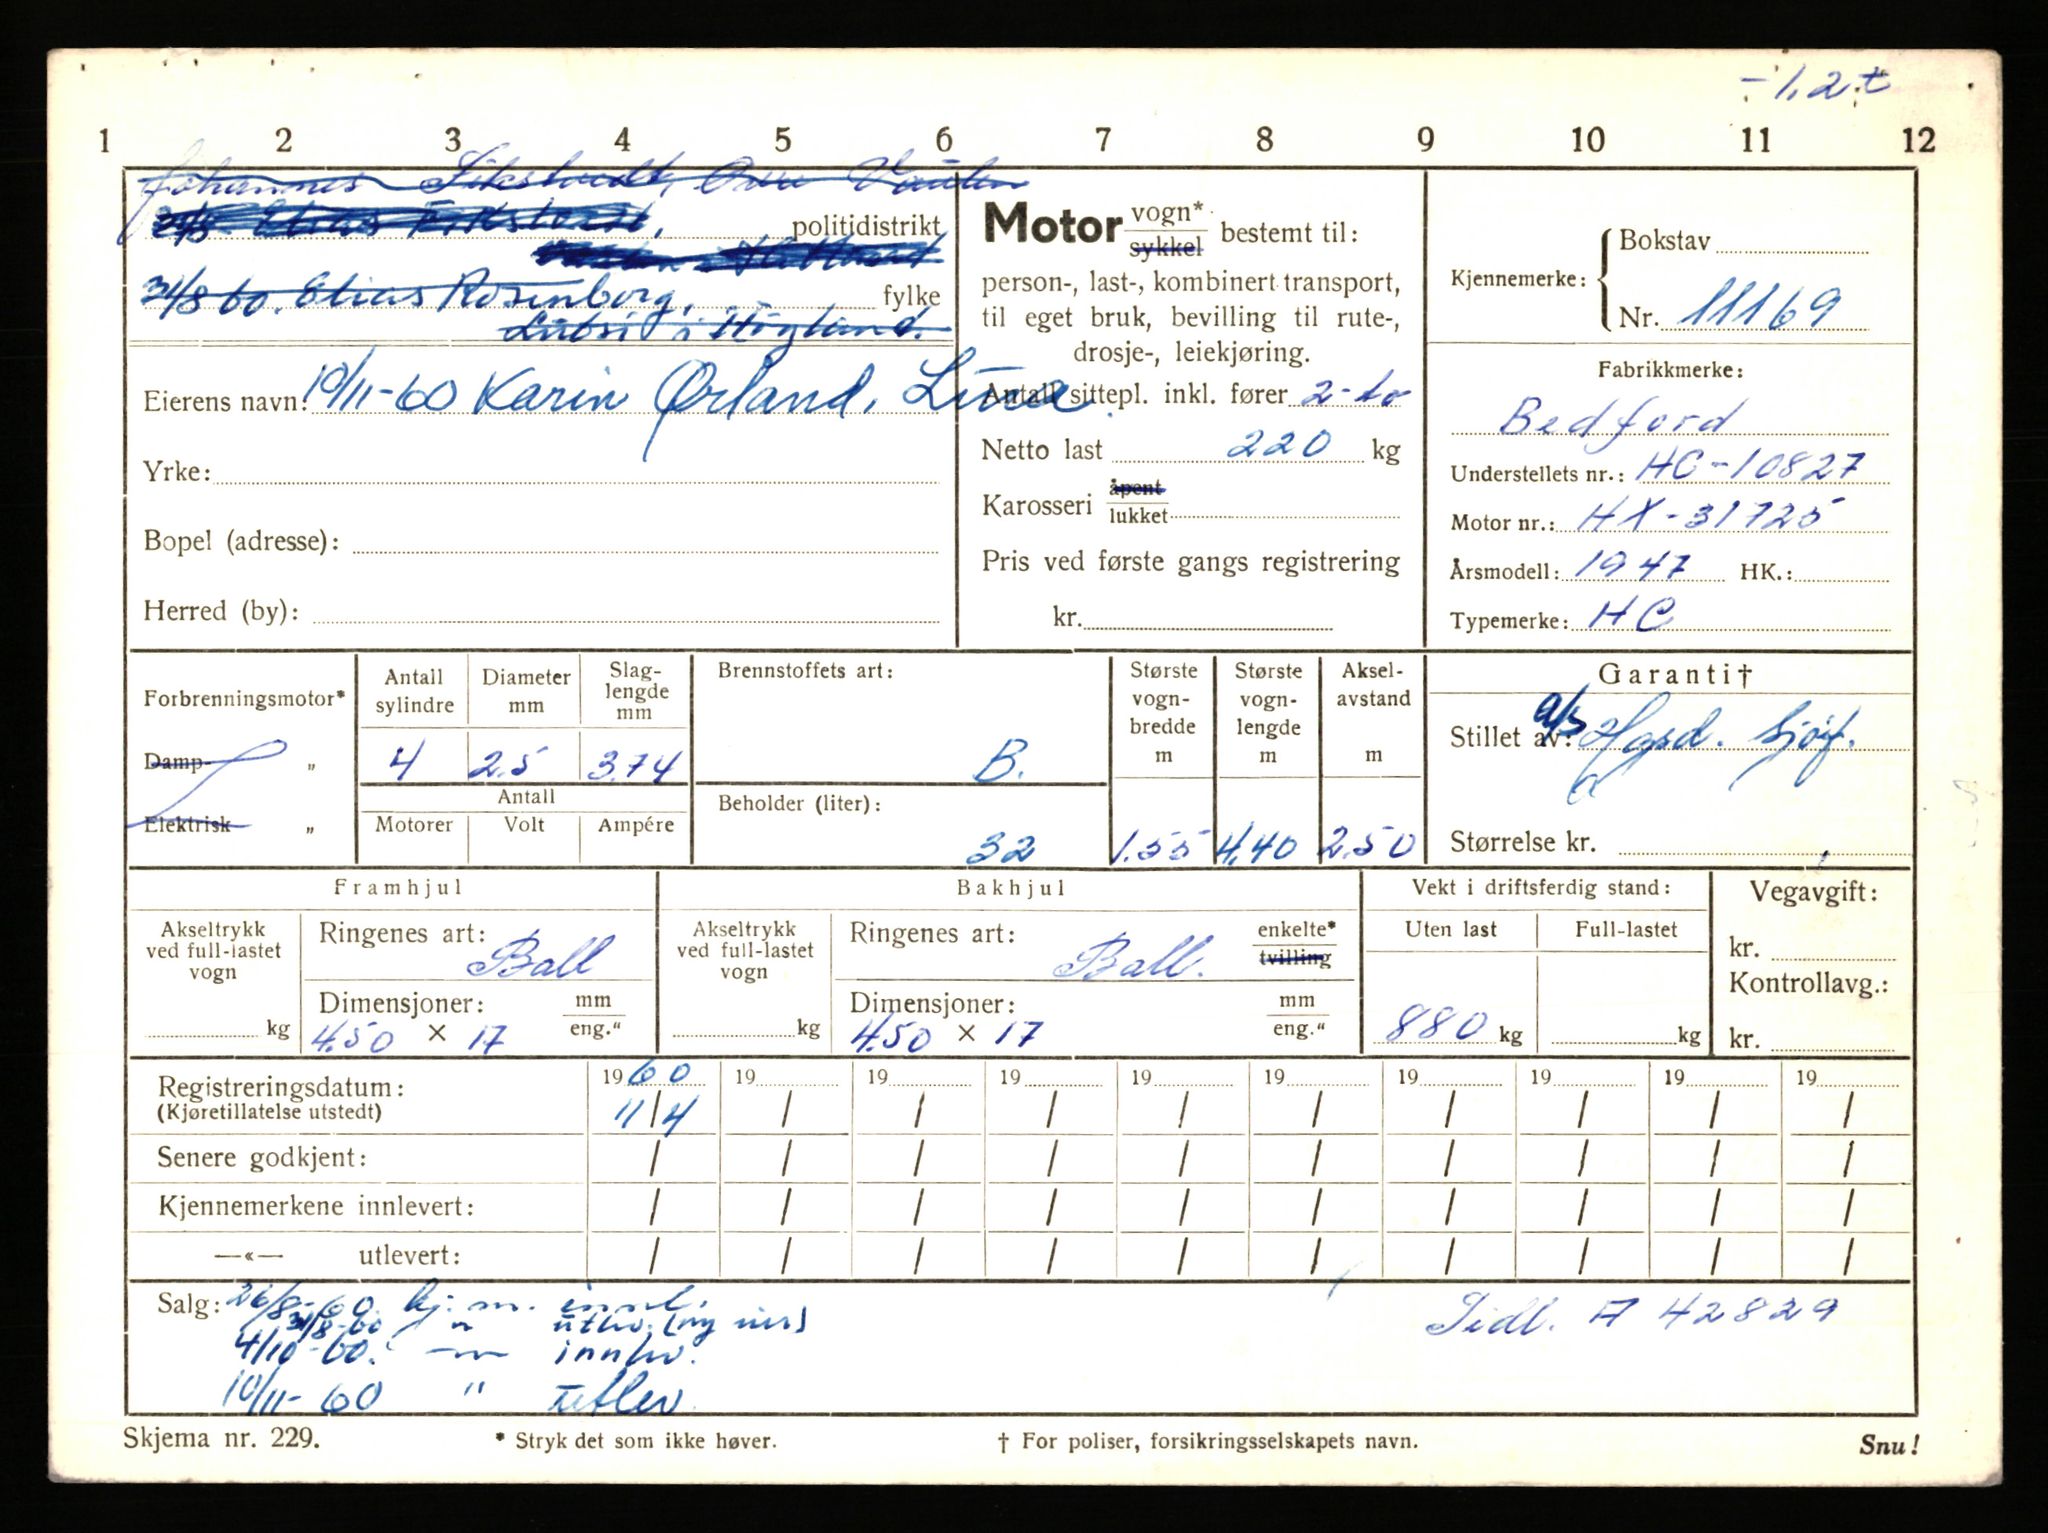 - 1,2 t
1 2 3 4 5 6 7 8 9 10 11 12
Johannes
politidistrikt
31/8 60. Elias Rosenborg, fylke
Eierens navn: 10/11-60 Karin Ørland, Lura
Yrke:
Bopel (adresse):
Herred (by):
Motor vogn* sykkel bestemt til:
person-, last-, kombinert transport,
til eget bruk, bevilling til rute-,
drosje-, leiekjøring.
Antall sittepl. inkl. fører 2-to
Netto last 220 kg
Karosseri åpent lukket
Pris ved første gangs registrering
kr.
Kjennemerke: Bokstav
Nr. 11169
Fabrikkmerke:
Bedford
Understellets nr.: HC-10827
Motor nr.: HX-31725
Årsmodell: 1947 HK.:
Typemerke: HC
Forbrenningsmotor*
Damp- „
Elektrisk „
Antall sylindre
4
Diameter mm
2.5
Slag-
lengde
mm
3.74
Antall
Motorer Volt Ampére
Brennstoffets art:
B.
Beholder (liter):
32
Største
vogn-
bredde
m
1.55
Største
vogn-
lengde
m
4.40
Aksel-
avstand
m
2.50
Garanti†
Stillet av: a/s
Størrelse kr.
Framhjul
Akseltrykk
ved full-lastet
vogn
kg
Ringenes art: Ball
Dimensjoner: mm eng."
4.50 × 17
Bakhjul
Akseltrykk
ved full-lastet
vogn
kg
Ringenes art: Ball. enkelte* tvilling
Dimensjoner: mm eng."
4.50 × 17
Vekt i driftsferdig stand:
Uten last Full-lastet
880 kg kg
Vegavgift:
kr.
Kontrollavg.:
kr.
Registreringsdatum: 1960 19 19 19 19 19 19 19 19 19
(Kjøretillatelse utstedt) 11/4 / / / / / / / / /
Senere godkjent: / / / / / / / / / /
Kjennemerkene innlevert: / / / / / / / / / /
—«— utlevert: / / / / / / / / / /
Salg: 26/8-60. kj.m. innl.
31/8-60 " utlev. (ny
4/10-60. —"— innlev.
10/11-60 " utlev
Tidl. A 42829
Skjema nr. 229. * Stryk det som ikke høver. † For poliser, forsikringsselskapets navn. Snu!